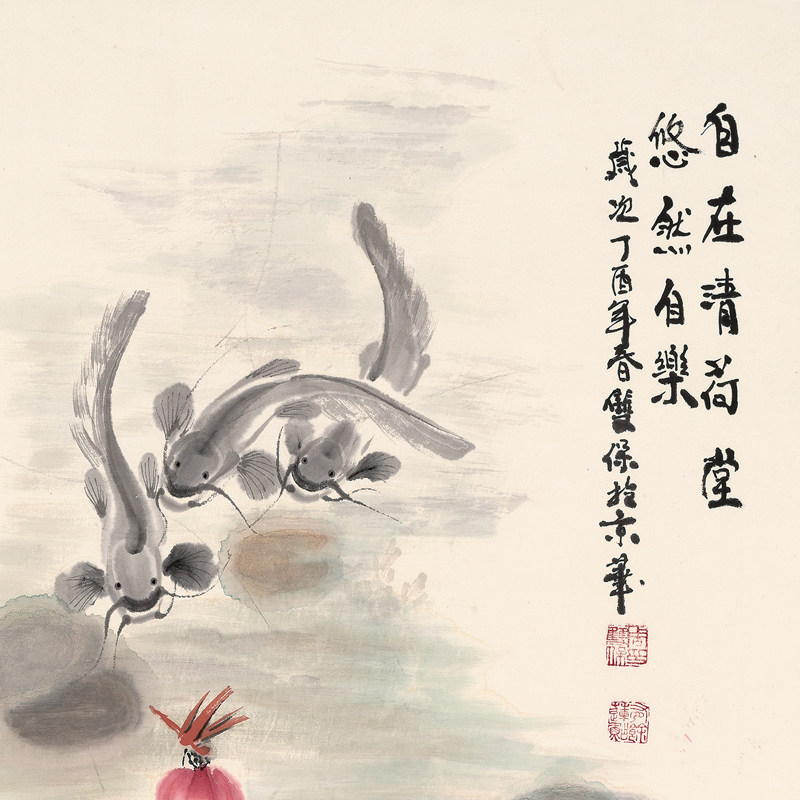 自在清荷堂
悠然自樂
歲次丁酉年春雙保於京華